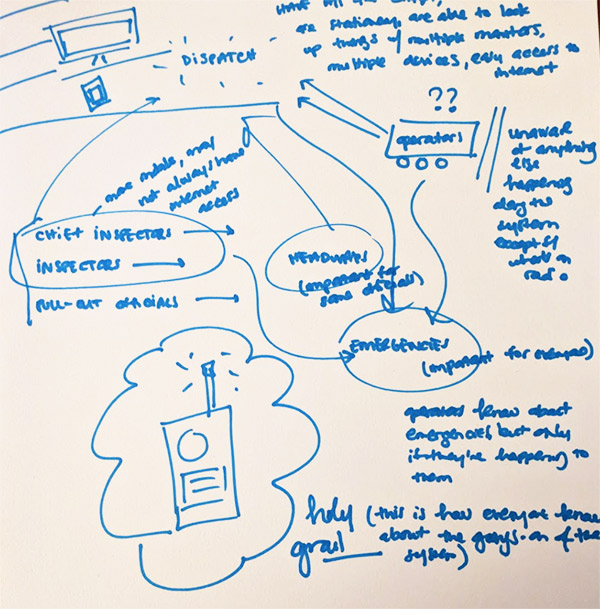 are stationary, are able to look
up things w/ multiple monitors,
multiple devices, easy access to
internet
DISPATCH
??
operators
unaware
of anything
else
happening
along the
system
except if
what's on
radio
more mobile, may
not always have
internet
access
CHIEF INSPECTORS
INSPECTORS
PULL-OUT OFFICIALS
HEADWAYS
(important for
some officials)
EMERGENCIES
(important for everyone)
operators know about
emergencies but only
if they're happening to
them
holy
grail
(this is how everyone knows
about the goings-on of the
system)